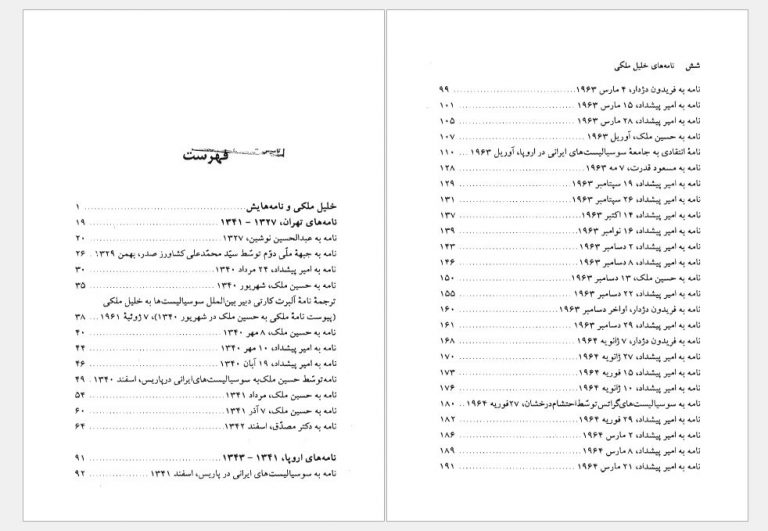 فهرست
خلیل ملکی و نامه‌هایش ........ ۱
نامه‌های تهران، ۱۳۲۷ – ۱۳۴۱ ........ ۱۹
نامه به عبدالحسین نوشین، ۱۳۲۷ ........ ۲۰
نامه به جبههٔ ملّی دوّم توسّط سیّد محمّدعلی کشاورز صدر، بهمن ۱۳۲۹ ... ۲۶
نامه به امیر پیشداد، ۲۴ مرداد ۱۳۴۰ ........ ۳۰
نامه به حسین ملک، شهریور ۱۳۴۰ ........ ۳۵
ترجمهٔ نامهٔ آلبرت کارتی دبیر بین‌الملل سوسیالیست‌ها به خلیل ملکی
(پیوست نامهٔ ملکی به حسین ملک در شهریور ۱۳۴۰)، ۷ ژوئیهٔ ۱۹۶۱ ... ۳۸
نامه به حسین ملک، ۸ مهر ۱۳۴۰ ........ ۴۰
نامه به امیر پیشداد، ۱۰ مهر ۱۳۴۰ ........ ۴۴
نامه به امیر پیشداد، ۱۹ آبان ۱۳۴۰ ........ ۴۶
نامه توسّط حسین ملک به سوسیالیست‌های ایرانی در پاریس، اسفند ۱۳۴۰ ۴۹
نامه به حسین ملک، مرداد ۱۳۴۱ ........ ۵۴
نامه به حسین ملک، ۷ آذر ۱۳۴۱ ........ ۶۰
نامه به دکتر مصدّق، اسفند ۱۳۴۲ ........ ۶۴
نامه‌های اروپا، ۱۳۴۱ – ۱۳۴۳ ........ ۹۱
نامه به سوسیالیست‌های ایرانی در پاریس، اسفند ۱۳۴۱ ........ ۹۲
شش نامه‌های خلیل ملکی
نامه به فریدون دژدار، ۴ مارس ۱۹۶۳ ........ ۹۹
نامه به امیر پیشداد، ۱۵ مارس ۱۹۶۳ ........ ۱۰۱
نامه به امیر پیشداد، ۲۸ مارس ۱۹۶۳ ........ ۱۰۵
نامه به حسین ملک، آوریل ۱۹۶۳ ........ ۱۰۷
نامهٔ انتقادی به جامعهٔ سوسیالیست‌های ایرانی در اروپا، آوریل ۱۹۶۳ ... ۱۱۰
نامه به مسعود قدرت، ۷ مه ۱۹۶۳ ........ ۱۲۸
نامه به امیر پیشداد، ۱۹ سپتامبر ۱۹۶۳ ........ ۱۲۹
نامه به امیر پیشداد، ۲۶ سپتامبر ۱۹۶۳ ........ ۱۳۱
نامه به امیر پیشداد، ۱۴ اکتبر ۱۹۶۳ ........ ۱۳۷
نامه به امیر پیشداد، ۱۶ نوامبر ۱۹۶۳ ........ ۱۳۹
نامه به امیر پیشداد، ۲ دسامبر ۱۹۶۳ ........ ۱۴۳
نامه به امیر پیشداد، ۸ دسامبر ۱۹۶۳ ........ ۱۴۶
نامه به حسین ملک، ۱۳ دسامبر ۱۹۶۳ ........ ۱۵۰
نامه به امیر پیشداد، ۲۲ دسامبر ۱۹۶۳ ........ ۱۵۵
نامه به فریدون دژدار، اواخر دسامبر ۱۹۶۳ ........ ۱۶۰
نامه به امیر پیشداد، ۲۹ دسامبر ۱۹۶۳ ........ ۱۶۱
نامه به فریدون دژدار، ۷ ژانویه ۱۹۶۴ ........ ۱۶۸
نامه به امیر پیشداد، ۲۷ ژانویه ۱۹۶۴ ........ ۱۷۰
نامه به امیر پیشداد، ۱۵ فوریه ۱۹۶۴ ........ ۱۷۳
نامه به امیر پیشداد، ۱۰ ژانویه ۱۹۶۴ ........ ۱۷۶
نامه به سوسیالیست‌های گراتس توسّط احتشام درخشان، ۲۷ فوریه ۱۹۶۴ .. ۱۸۰
نامه به امیر پیشداد، ۲۹ فوریه ۱۹۶۴ ........ ۱۸۲
نامه به امیر پیشداد، ۲ مارس ۱۹۶۴ ........ ۱۸۶
نامه به امیر پیشداد، ۸ مارس ۱۹۶۴ ........ ۱۸۹
نامه به امیر پیشداد، ۲۱ مارس ۱۹۶۴ ........ ۱۹۱